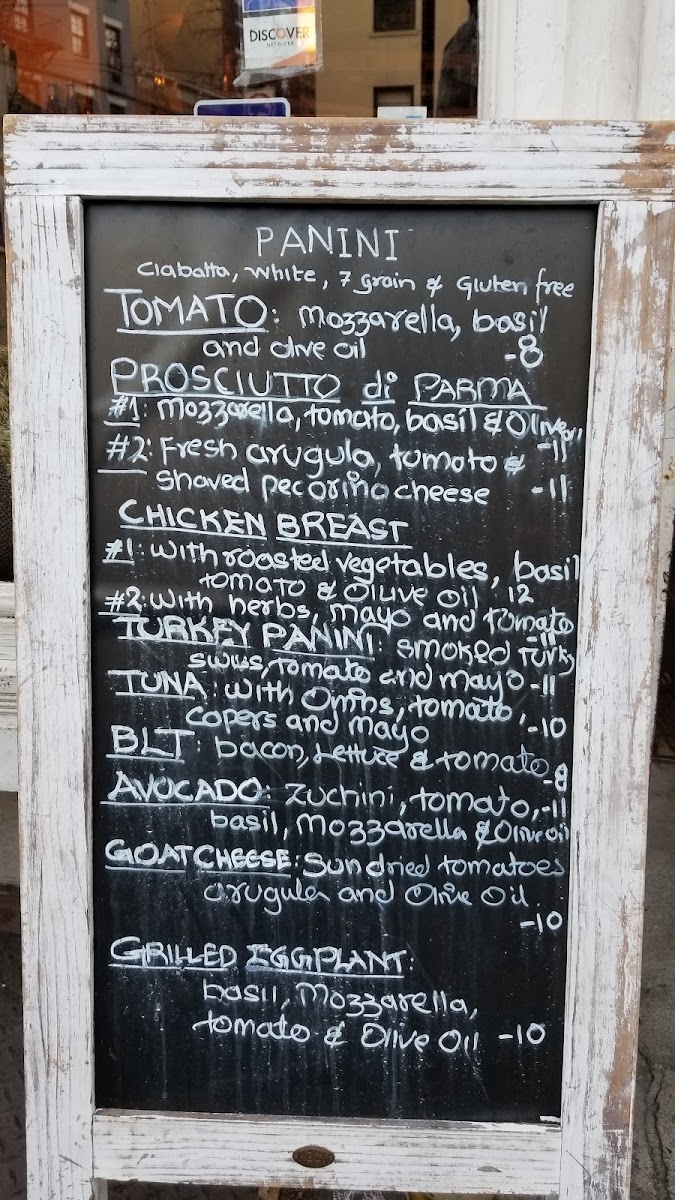 DISCOVER
NETWORK
PANINI
Ciabatta, white, 7 grain & Gluten free
TOMATO: mozzarella, basil
and olve oil -8
PROSCIUTTO di PARMA
#1: Mozzarella, tomato, basil & Olive oil
-11
#2: Fresh arugula, tomato &
Shaved pecorino cheese -11
CHICKEN BREAST
#1: with roasted vegetables, basil
tomato & Olive oil 12
#2: with herbs, mayo and tomato
-11
TURKEY PANINI: smoked Turky
swiss, tomato and mayo -11
TUNA: with Onins, tomato,
copers and mayo -10
BLT: bacon, Lettuce & tomato
-8
AVOCADO: Zuchini, tomato, -11
basil, Mozzarella & Olive oil
GOAT CHEESE: Sun dried tomatoes
arugula and Olive Oil
-10
GRILLED EGGPLANT:
basil, Mozzarella,
tomato & Olive Oil -10